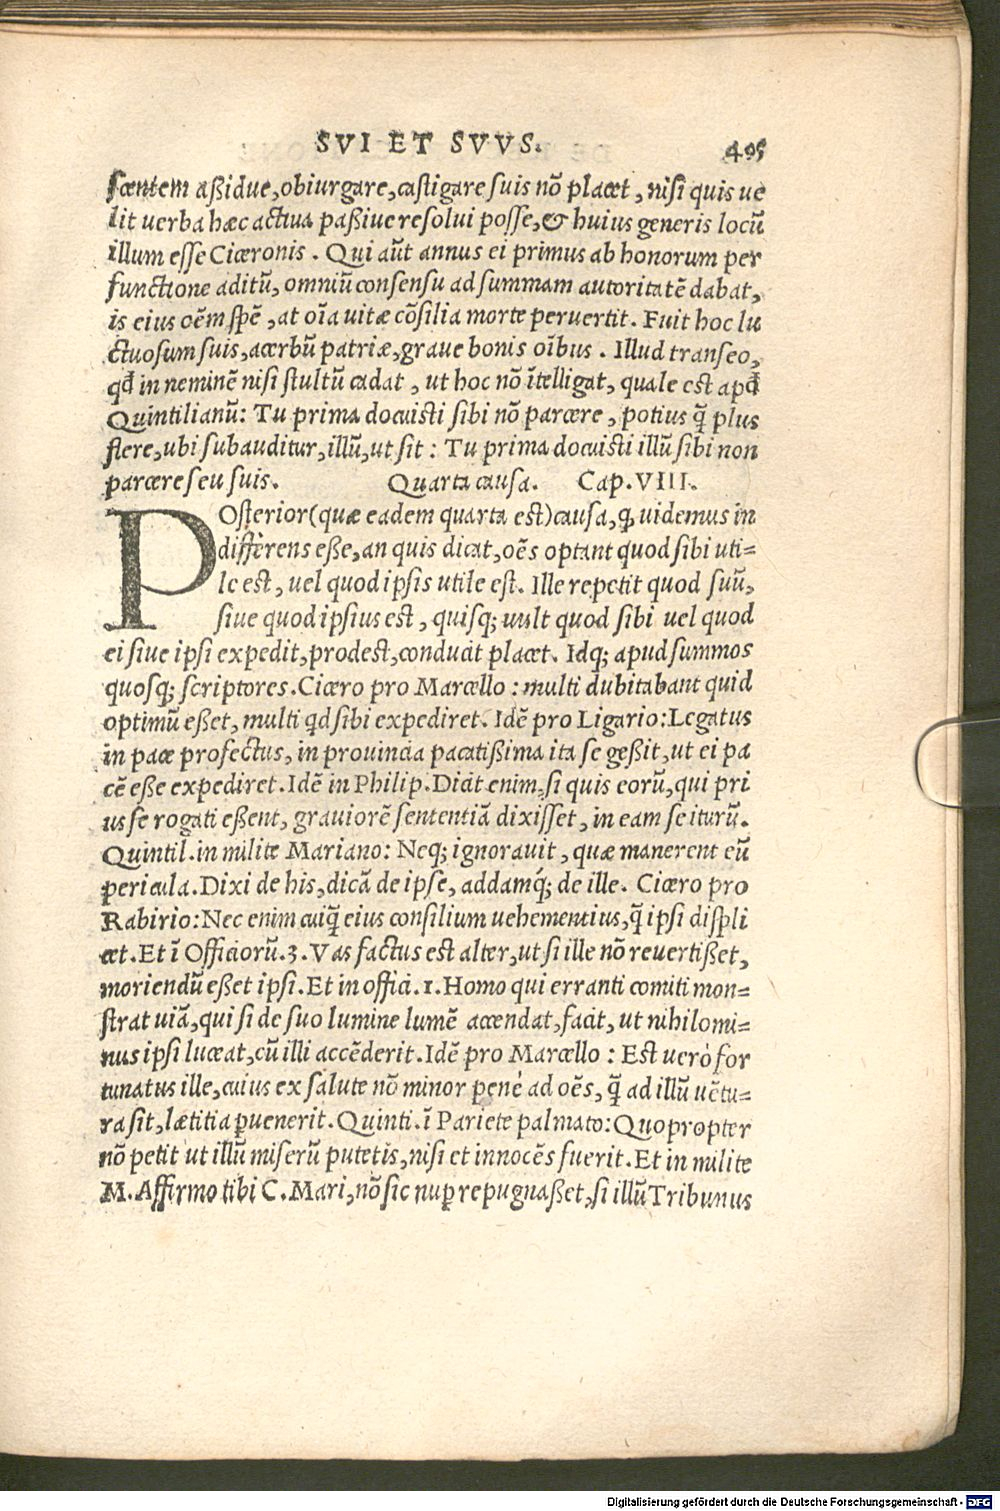 SVI ET SVVS. 495
scentem aßidue, obiurgare, castigare suis nõ placet, nisi quis ue
lit uerba hæc actiua paßiue resolui posse, & huius generis locũ
illum esse Ciceronis. Qui aũt annus ei primus ab honorum per
functione aditũ, omniũ consensu ad summam autoritatẽ dabat,
is eius oẽm spẽ, at oĩa uitæ cõsilia morte peruertit. Fuit hoc lu
ctuosum suis, acerbũ patriæ, graue bonis oĩbus. Illud transeo,
qđ in neminẽ nisi stultũ cadat, ut hoc nõ ĩtelligat, quale est apđ
Quintilianũ: Tu prima docuisti sibi nõ parcere, potius q̃ plus
flere, ubi subauditur, illũ, ut sit: Tu prima docuisti illũ sibi non
parcere seu suis. Quarta causa. Cap. VIII.
POsterior (quæ eadem quarta est) causa, ꝙ uidemus in
differens eße, an quis dicat, oẽs optant quod sibi uti=
le est, uel quod ipsis utile est. Ille repetit quod suũ,
siue quod ipsius est, quisq; uult quod sibi uel quod
ei siue ipsi expedit, prodest, conducit placet. Idq; apud summos
quosq; scriptores. Cicero pro Marcello: multi dubitabant quid
optimũ eßet, multi qd sibi expediret. Idẽ pro Ligario: Legatus
in pace profectus, in prouincia pacatißima ita se geßit, ut ei pa
cẽ eße expediret. Idẽ in Philip. Dicit enim, si quis eorũ, qui pri
us se rogati eßent, grauiorẽ sententiã dixisset, in eam se iturũ.
Quintil. in milite Mariano: Neq; ignorauit, quæ manerent eũ
pericula. Dixi de his, dicã de ipse, addamq́; de ille. Cicero pro
Rabirio: Nec enim cuiq̃ eius consilium uehementius, q̃ ipsi displi
cet. Et ĩ Officiorũ. 3. Vas factus est alter, ut si ille nõ reuertißet,
moriendũ eßet ipsi. Et in offici. 1. Homo qui erranti comiti mon=
strat uiã, qui si de suo lumine lumẽ accendat, facit, ut nihilomi=
nus ipsi luceat, cũ illi accẽderit. Idẽ pro Marcello: Est uerò for
tunatus ille, cuius ex salute nõ minor penè ad oẽs, q̃ ad illũ uẽtu=
ra sit, lætitia ꝑuenerit. Quinti. ĩ Pariete palmato: Quopropter
nõ petit ut illũ miserũ putetis, nisi et innocẽs fuerit. Et in milite
M. Affirmo tibi C. Mari, nõ sic nuꝑ repugnaßet, si illũ Tribunus
Digitalisierung gefördert durch die Deutsche Forschungsgemeinschaft - DFG